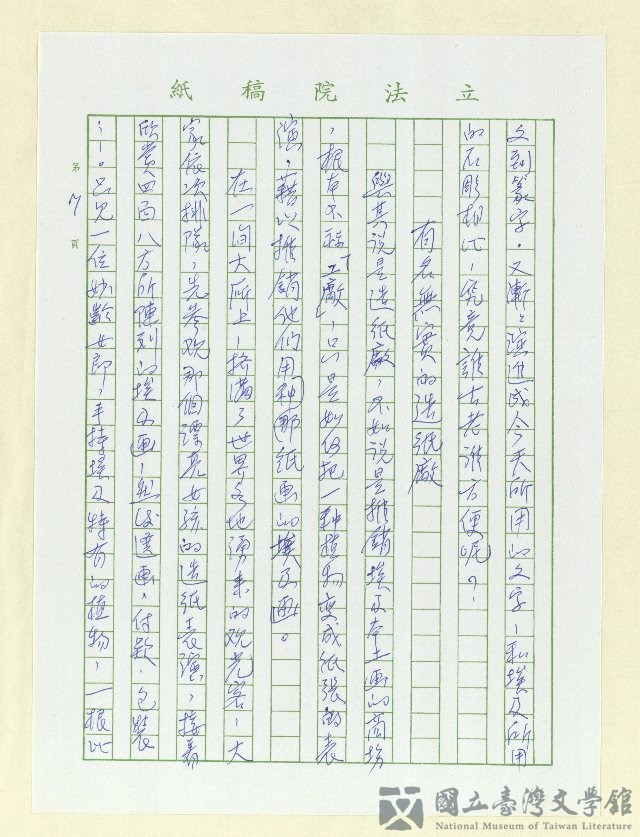 立法院稿紙
文到篆字。又漸漸演進成今天所用的文字,和埃及所用
的石彫相比,究竟誰古老誰方便呢?
有名無實的造紙廠
與其說是造紙廠,不如說是推銷埃及本土畫的商場
,根本不称「工廠」,只是如何把一种植物变成紙張的表
演,藉以推銷他們用那种紙画的埃及画。
在一间大所上,挤满了世界各地湧来的观光客,大
家依次排隊,先参观那個漂亮女孩的造紙表演,接着
欣賞四面八方所陳列的埃及画,然後選画、付款、包裝
…。只見一位妙齡女郎,手持埃及特有的植物,一根比
第 7 頁
國立臺灣文學館
National Museum of Taiwan Literature